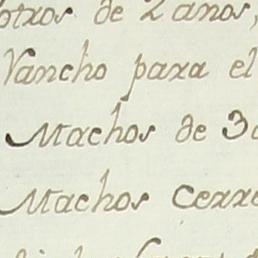 otros de 2 anos,
Rancho para el
Machos de 3
Machos Cerre